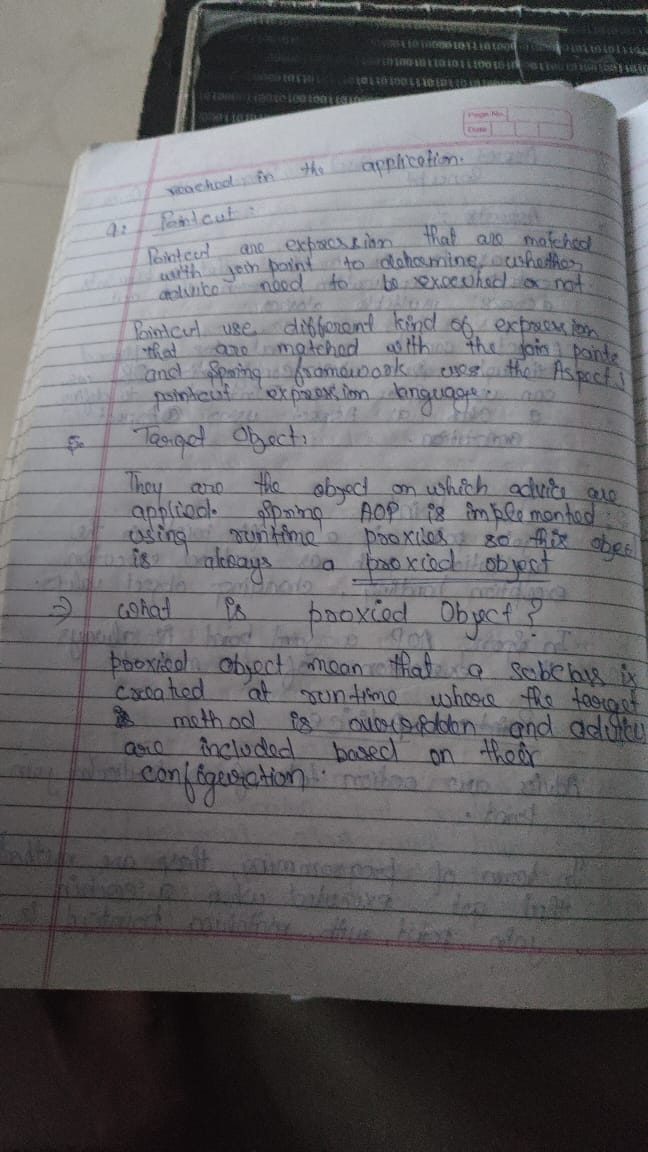 Page No.
Date
reached in the application.
4: Pointcut:
Pointcut are expression that are matched
with join point to determine whether
advice need to be executed or not
Pointcut use different kind of expression
that are matched with the join points
and Spring framework uses the AspectJ
pointcut expression language.
5. Target Object:
They are the object on which advice are
applied. Spring AOP is implemented
using runtime proxies so this object
is always a proxied object
=> what is proxied Object?
proxied object mean that a subclass is
created at runtime where the target
method is overridden and advice
are included based on their
configuration.